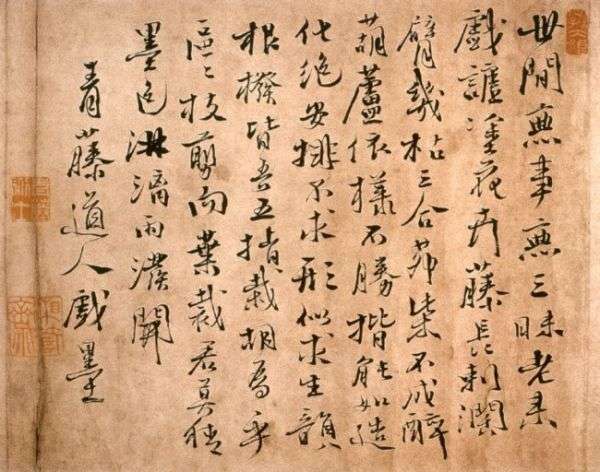 世間無事無三昧老來
戲謔塗花卉藤長刺濶
臂幾枯三合茆柴不成醉
葫蘆依樣不勝揩能如造
化絕安排不求形似求生韻
根撥皆吾五指栽胡為乎
區〻枝剪而葉裁君莫猜
墨色淋漓雨潑開
青藤道人戲墨